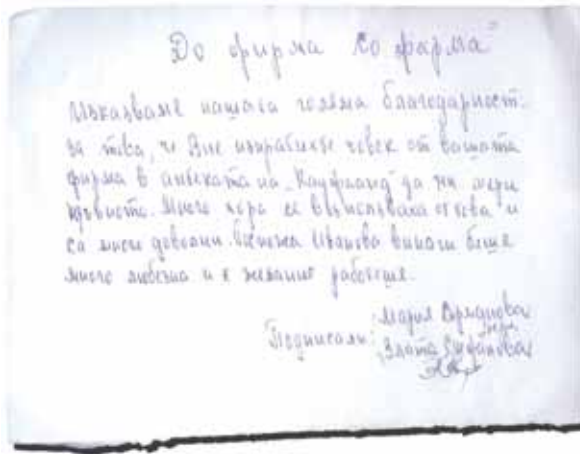 До фирма „Софарма"
Изказваме нашата голяма благодарност
за това, че Вие изпратихте човек от вашата
фирма в аптеката на „Кауфланд" да ни мери
кръвното. Много хора се възползваха от това и
са много доволни. Иванова винаги беше
много любезна и с желание работеше.
Подписали: Мария
Злата